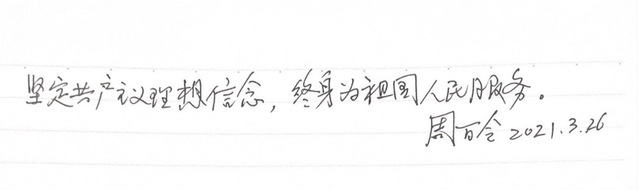 坚定共产主义理想信念，终身为祖国人民服务。
周百全 2021.3.26